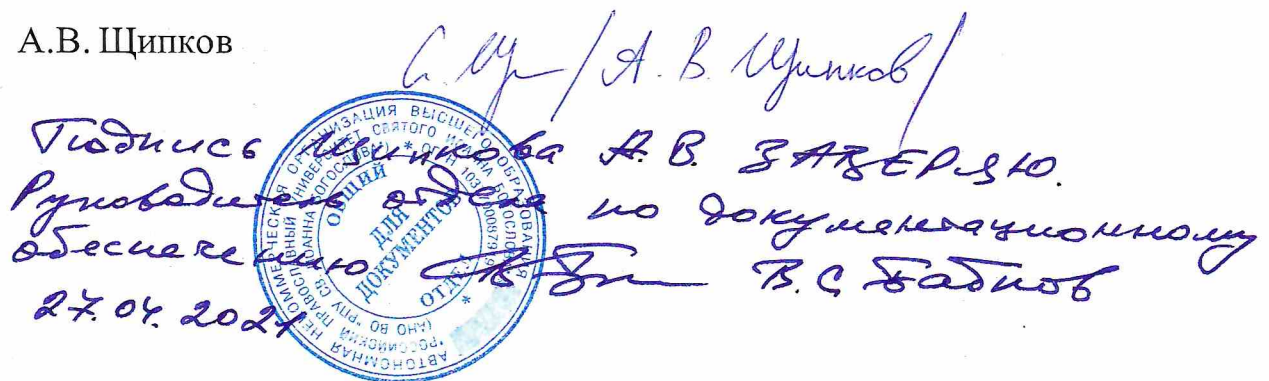 А.В. Щипков
/ А. В. Щипков /
Подпись Щипкова А. В. ЗАВЕРЯЮ.
Руководитель отдела по документационному
обеспечению В. С. Бабков
27.04.2021
АВТОНОМНАЯ НЕКОММЕРЧЕСКАЯ ОРГАНИЗАЦИЯ ВЫСШЕГО ОБРАЗОВАНИЯ
"РОССИЙСКИЙ ПРАВОСЛАВНЫЙ УНИВЕРСИТЕТ СВЯТОГО ИОАННА БОГОСЛОВА"
(АНО ВО "РПУ СВ. ИОАННА БОГОСЛОВА") * ОГРН
ОБЩИЙ
ОТДЕЛ
ДЛЯ
ДОКУМЕНТОВ